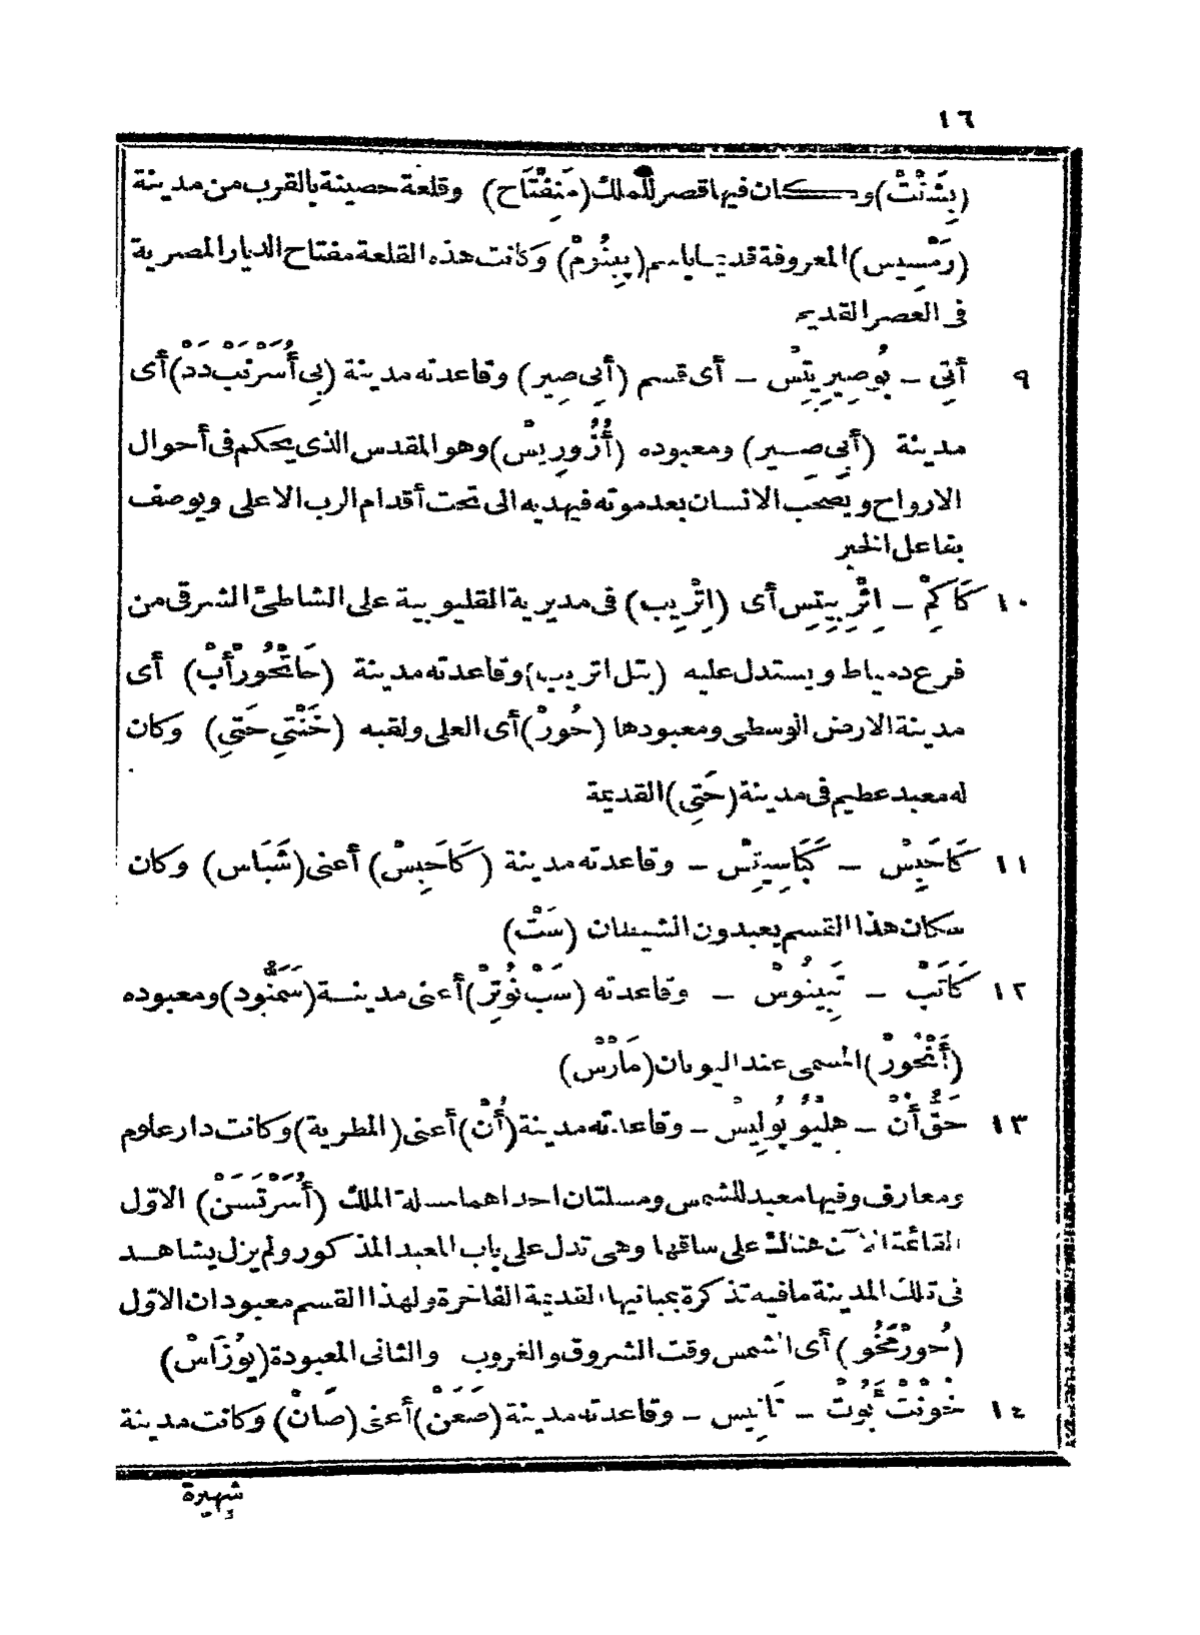 ١٦
(بِشَنْتْ) وكان فيها قصر للملك (مَنِفْتَاح) وقلعة حصينة بالقرب من مدينة
(رَمْسِيس) المعروفة قديما باسم (پِبِنُومْ) وكانت هذه القلعة مفتاح الديار المصرية
فى العصر القديم
٩ أتِى – بُوصِيرِيتِسْ – أى قسم (أبِى صِير) وقاعدته مدينة (بِى أُسَرْنَبْ دَدْ) أى
مدينة (أبِى صِير) ومعبوده (أُزُورِيسْ) وهو المقدس الذى يحكم فى أحوال
الارواح ويصحب الانسان بعد موته فيهديه الى تحت أقدام الرب الاعلى ويوصف
بفاعل الخير
١٠ كَاكِمْ – اِتْرِيبِيتِس أى (اِتْرِيب) فى مديرية القليوبية على الشاطئ الشرقى من
فرع دمياط ويستدل عليه (بتل اتريب) وقاعدته مدينة (حَاتْحُورْأبْ) أى
مدينة الارض الوسطى ومعبودها (حُورْ) أى العلى ولقبه (خَنْتِى حَتِى) وكان
له معبد عظيم فى مدينة (حَتِى) القديمة
١١ كَاحَبِسْ – كَبَاسِيتِسْ – وقاعدته مدينة (كَاحَبِسْ) أعنى (شَبَاس) وكان
سكان هذا القسم يعبدون الشيطان (سَتْ)
١٢ كَاتَبْ – تَبِينُوسْ – وقاعدته (سَبْ نُوتِرْ) أعنى مدينة (سَمَنُّود) ومعبوده
(أَنْحُورْ) المسمى عند اليونان (مَارْسْ)
١٣ حَقْ أُنْ – هِلْيُو پُولِيسْ – وقاعدته مدينة (أُنْ) أعنى (المطرية) وكانت دار علوم
ومعارف وفيها معبد للشمس ومسلتان احداهما مسلة الملك (أُسَرْتَسَنْ) الاوّل
القائمة الآن هنالك على ساقها وهى تدل على باب المعبد المذكور ولم يزل يشاهد
فى تلك المدينة ما فيه تذكرة بمبانيها القديمة الفاخرة ولهذا القسم معبودان الاوّل
(حُورْمَخُو) أى الشمس وقت الشروق والغروب والثانى المعبودة (يُوزَاسْ)
١٤ خُونْتْ أَبُوتْ – تَانِيس – وقاعدته مدينة (صَعَنْ) أعنى (صَانْ) وكانت مدينة
شهيرة